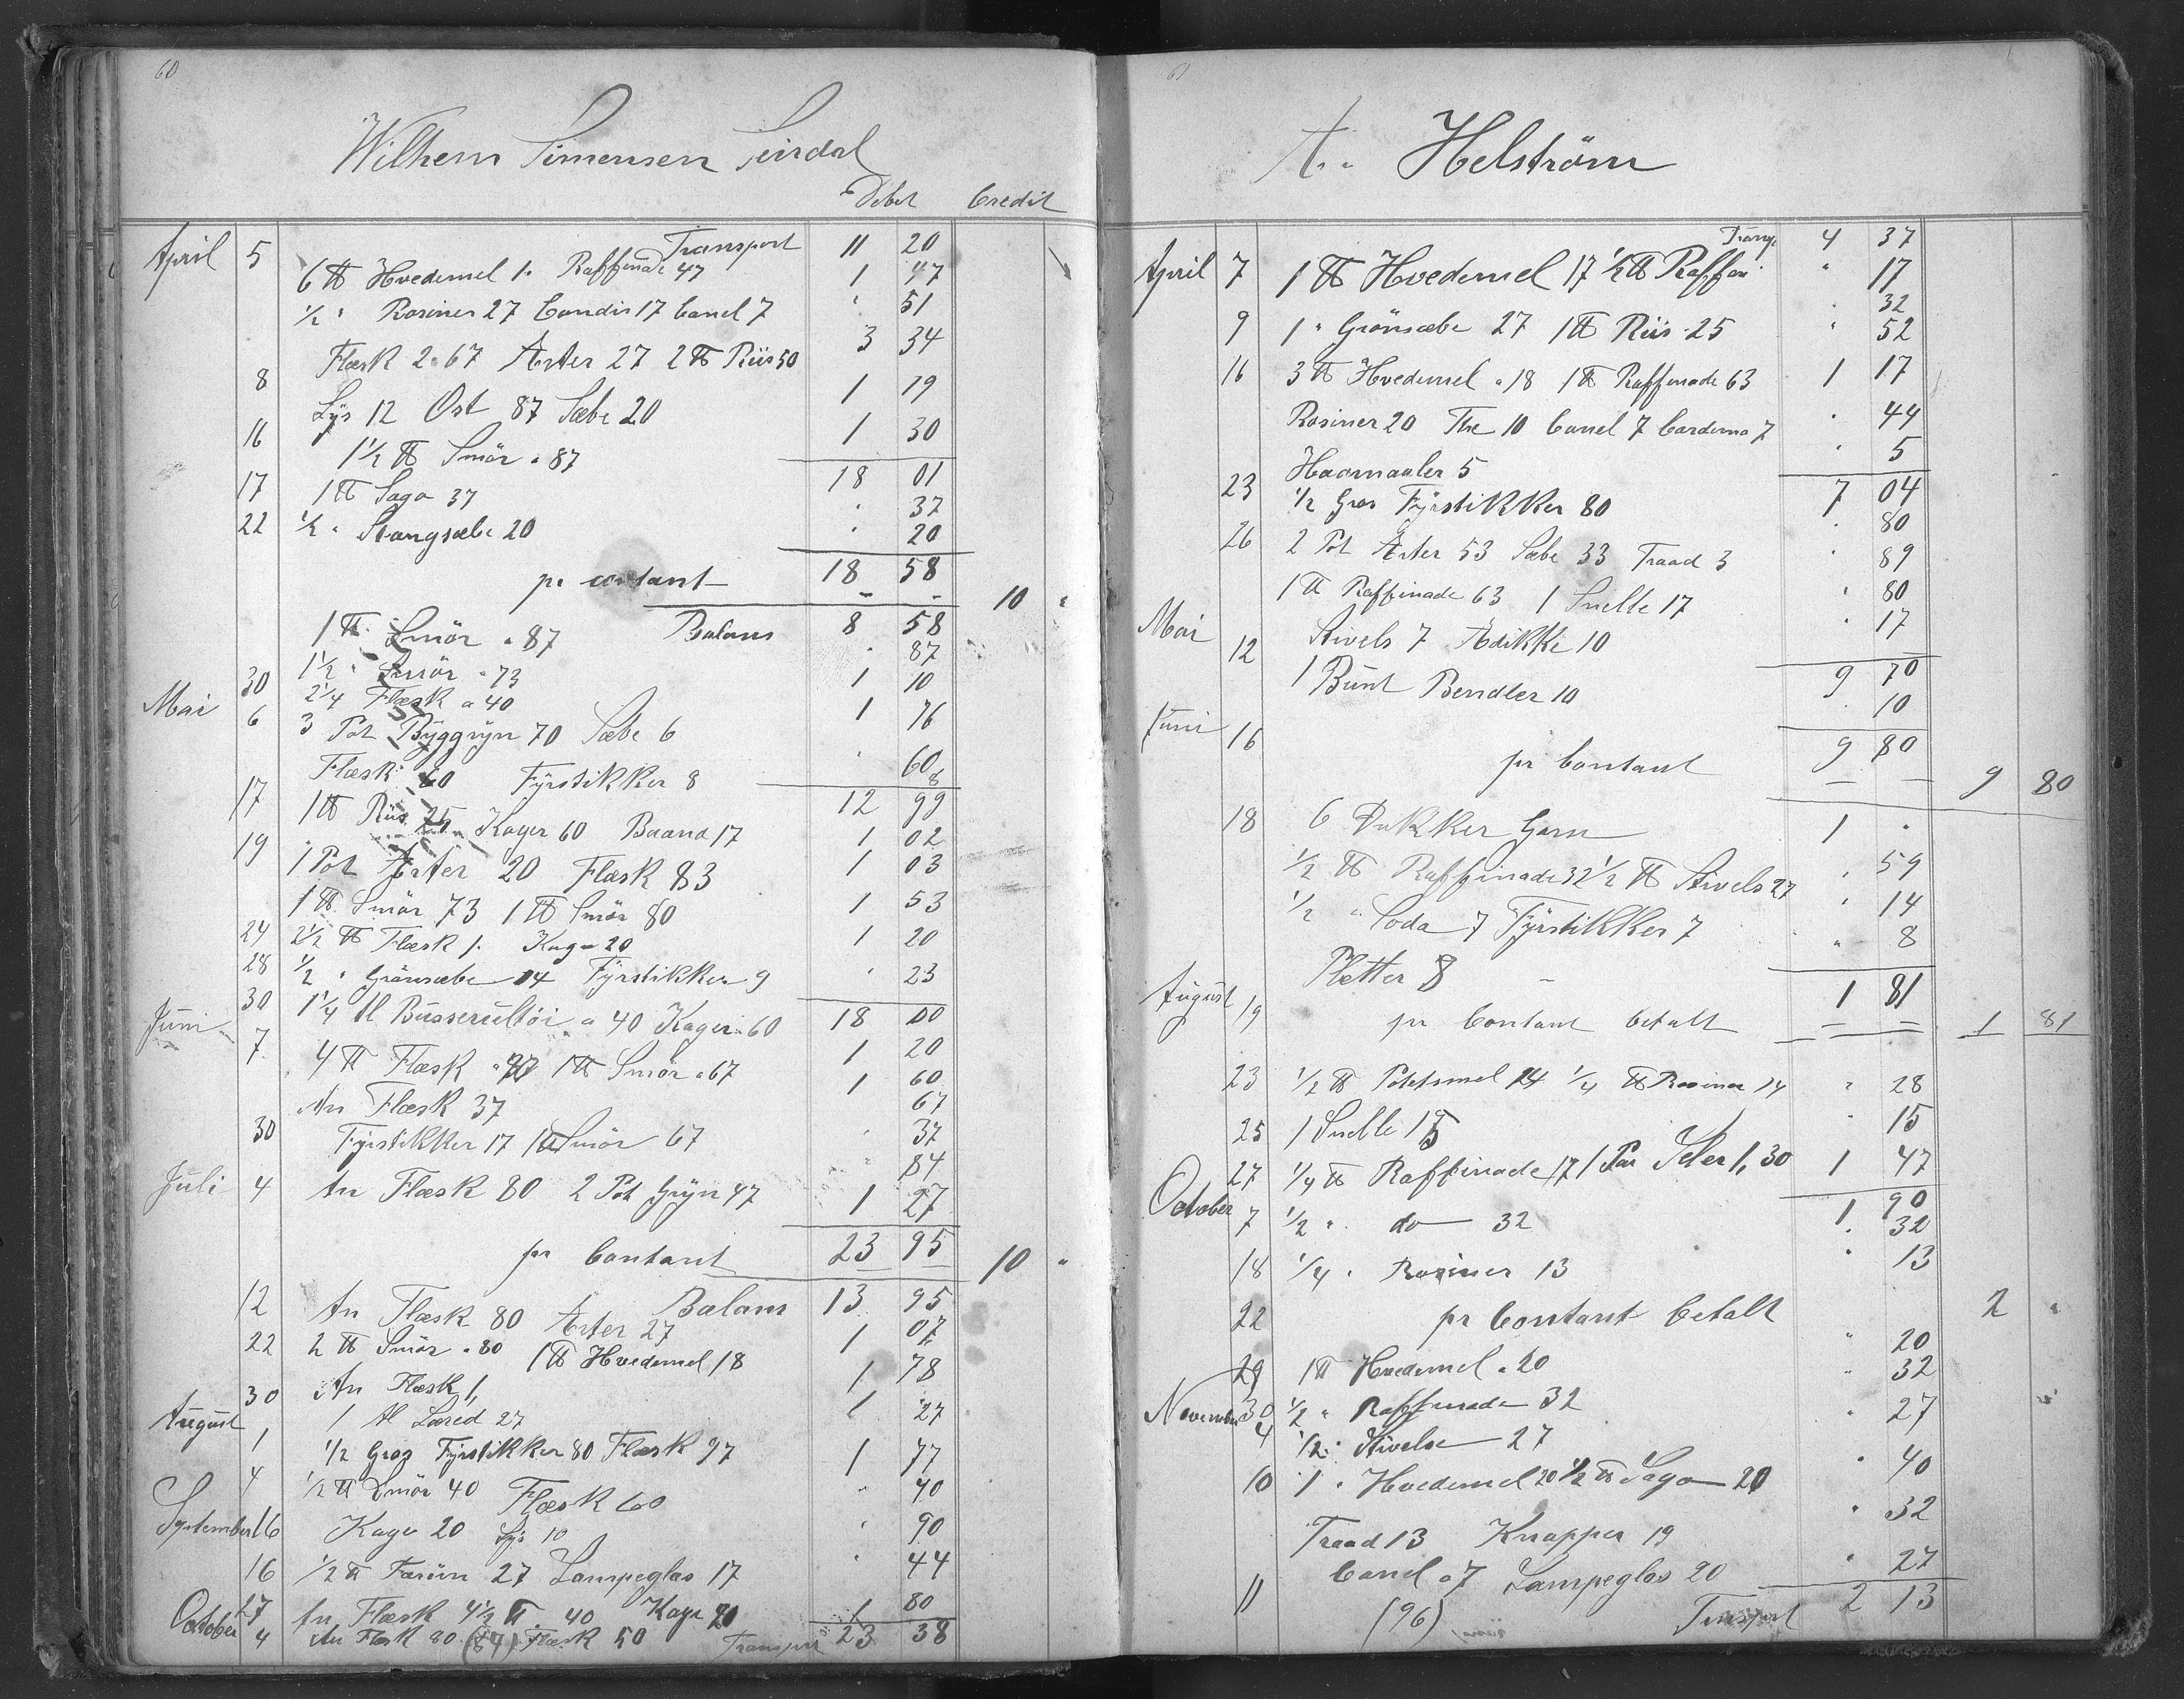 60
Wilhem Simensen
Debet Credit
Transport 11 20
April 5 6 ℔ Hvedemel 1. Raffinade 47 1 47
1/2 " Rosiner 27 Candis 17 Canel 7 " 51
Flæsk 2.67 Ærter 27 2 ℔ Riis 50 3 34
8 Lys 12 Ost 87 Sæbe 20 1 19
16 1 1/2 ℔ Smör a 87 1 30
18 01
17 1 ℔ Sago 37 " 37
22 1/2 " Stangsæbe 20 " 20
18 58
pr contant 10 "
Balans 8 58
1 ℔ Smör a 87 " 87
30 1 1/2 " Smör a 73 1 10
Mai 6 2 1/4 Flæsk a 40
3 Pot Byggryn 70 Sæbe 6 1 76
Flæsk 60 Fyrstikker 8 " 60 8
12 99
17 1 ℔ Riis 25 Kager 60 Baand 17 1 02
19 1 Pot Ærter 20 Flæsk 83 1 03
1 ℔ Smör 73 1 ℔ Smör 80 1 53
24 2 1/2 ℔ Flæsk 1. Kage 20 1 20
28 1/2 " Grönsæbe 14 Fyrstikker 9 " 23
18 00
30 1 1/4 Al Busserultöi a 40 Kager 60 1 20
Juni 7 4 ℔ Flæsk 1 ℔ Smör a 67 1 60
67
An Flæsk 37 " 37
30 Fyrstikker 17 1 ℔ Smör 67 " 84
Juli 4 An Flæsk 80 2 Pot Gryn 47 1 27
23 95
pr Contant 10 "
Balans 13 95
12 An Flæsk 80 Ærter 27 1 07
22 2 ℔ Smör a 80 1 ℔ Hvedemel 18 1 78
30 An Flæsk 1, 1
August 1 1 Al Læred 27 " 27
4 1/2 Gros Fyrstikker 80 Flæsk 97 1 77
1/2 ℔ Smör 40 " 40
September 16 Flæsk 60 Kage 20 Lys 10 " 90
16 1/2 ℔ Farin 27 Lampeglas 17 " 44
27 An Flæsk 4 1/2 ℔ 40 Kage 1 80
October 4 An Flæsk 80 (84) Flæsk 50 Transport 23 38
61
A. Helström
Transp 4 37
April 7 1 ℔ Hvedemel 17 1/2 ℔ Raffin " 17
32
9 1 " Grönsæbe 27 1 ℔ Riis 25 " 52
16 3 ℔ Hvedemel a 18 1 ℔ Raffinade 63 1 17
Rosiner 20 The 10 Canel 7 Cardemo 7 " 44
Haarnaaler 5 " 5
7 04
23 1/2 Gros Fyrstikker 80 " 80
26 2 Pot Ærter 53 Sæbe 33 Traad 3 " 89
1 ℔ Raffinade 63 1 Snelle 17 " 80
Mai Stivels 7 Ædikke 10 " 17
9 70
12 1 Bunt Bendler 10 " 10
9 80
Juni 16 pr Contant 9 80
18 6 Dukker Garn 1 "
1/2 ℔ Raffinade 32 1/2 ℔ Stivels 27 " 59
1/2 " Soda 7 Fyrstikker 7 " 14
Pletter 8 " 8
1 81
August 19 pr Contant betalt 1 81
23 1/2 ℔ Potetsmel 14 1/4 ℔ Rosiner 14 " 28
25 1 Snelle 15 " 15
27 1/4 ℔ Raffinade 17 1 Par Seler 1,30 1 47
1 90
October 7 1/2 " do 32 " 32
18 1/4 " Rosiner 13 " 13
22 pr Contant betalt 2 "
29 1 ℔ Hvedemel a 20 " 20
30 1/2 " Raffinade 32 " 32
November 4 1/2 " Stivelse 27 " 27
10 1 " Hvedemel 20 1/2 ℔ Sago 20 " 40
Traad 13 Knapper 19 " 32
11 Canel a 7 Lampeglas 20 " 27
(96) Transport 2 13